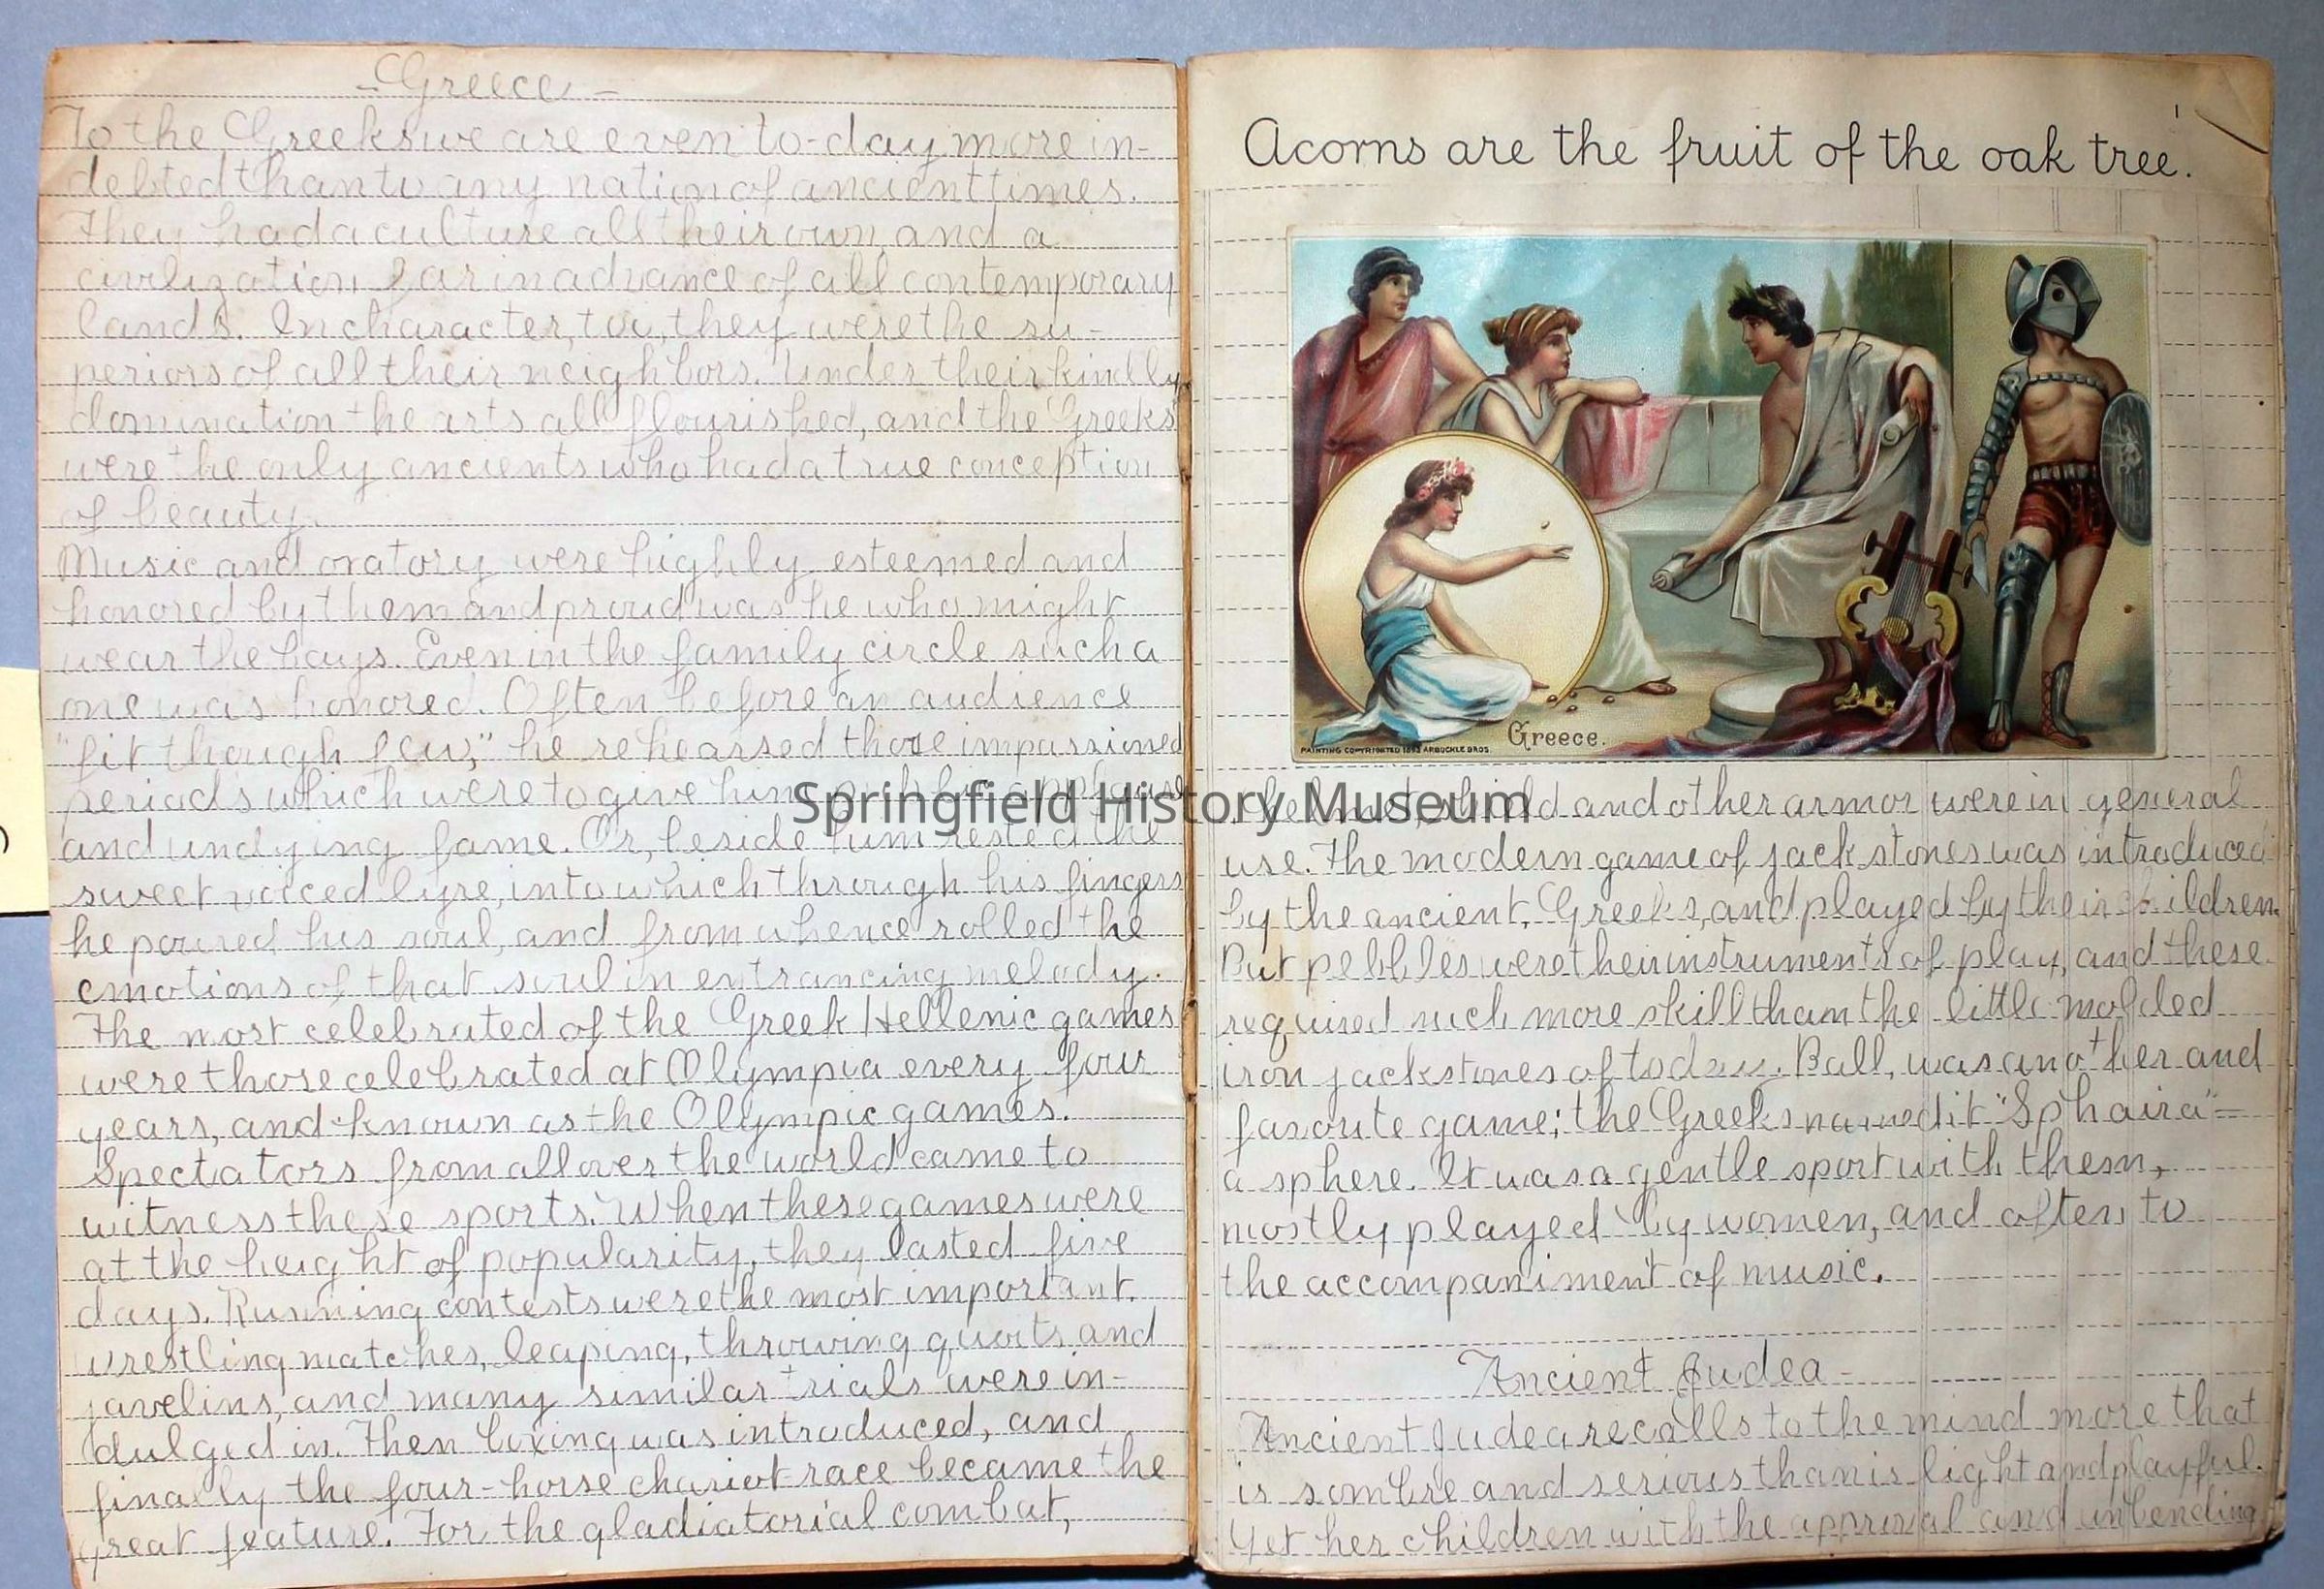 - Greece -
To the Greeks we are even to-day more in-
debted than to any nation of ancient times.
They had a culture all their own, and a
civilization far in advance of all contemporary
lands. In character, too, they were the su-
periors of all their neighbors. Under their kindly
domination the arts all flourished, and the Greeks
were the only ancients who had a true conception
of beauty.
Music and oratory were highly esteemed and
honored by them and proud was he who might
wear the bays. Even in the family circle such a
one was honored. Often before an audience
"fit though few," he rehearsed those impassioned
periods which were to give him applause
and undying fame. Or, beside him rested the
sweet voiced lyre, into which through his fingers
he poured his soul, and from whence rolled the
emotions of that soul in entrancing melody.
The most celebrated of the Greek Hellenic games
were those celebrated at Olympia every four
years, and known as the Olympic games.
Spectators from all over the world came to
witness these sports. When these games were
at the height of popularity, they lasted five
days. Running contests were the most important.
wrestling matches, leaping, throwing quoits and
javelins, and many similar trials were in-
dulged in. Then boxing was introduced, and
finally the four-horse chariot race became the
great feature. For the gladiatorial combat,
Acorns are the fruit of the oak tree.
Greece.
PAINTING COPYRIGHTED 1893 ARBUCKLE BROS.
helmet, shield and other armor were in general
use. The modern game of jack stones was introduced
by the ancient Greeks, and played by their children.
But pebbles were their instruments of play, and these
required much more skill than the little molded
iron jackstones of today. Ball, was another and
favorite game; the Greeks named it "Sphaira" -
a sphere. It was a gentle sport with them,
mostly played by women, and often to
the accompaniment of music.
Ancient Judea -
Ancient Judea recalls to the mind more that
is sombre and serious than is light and playful.
Yet her children with the approval and unbending
Springfield History Museum